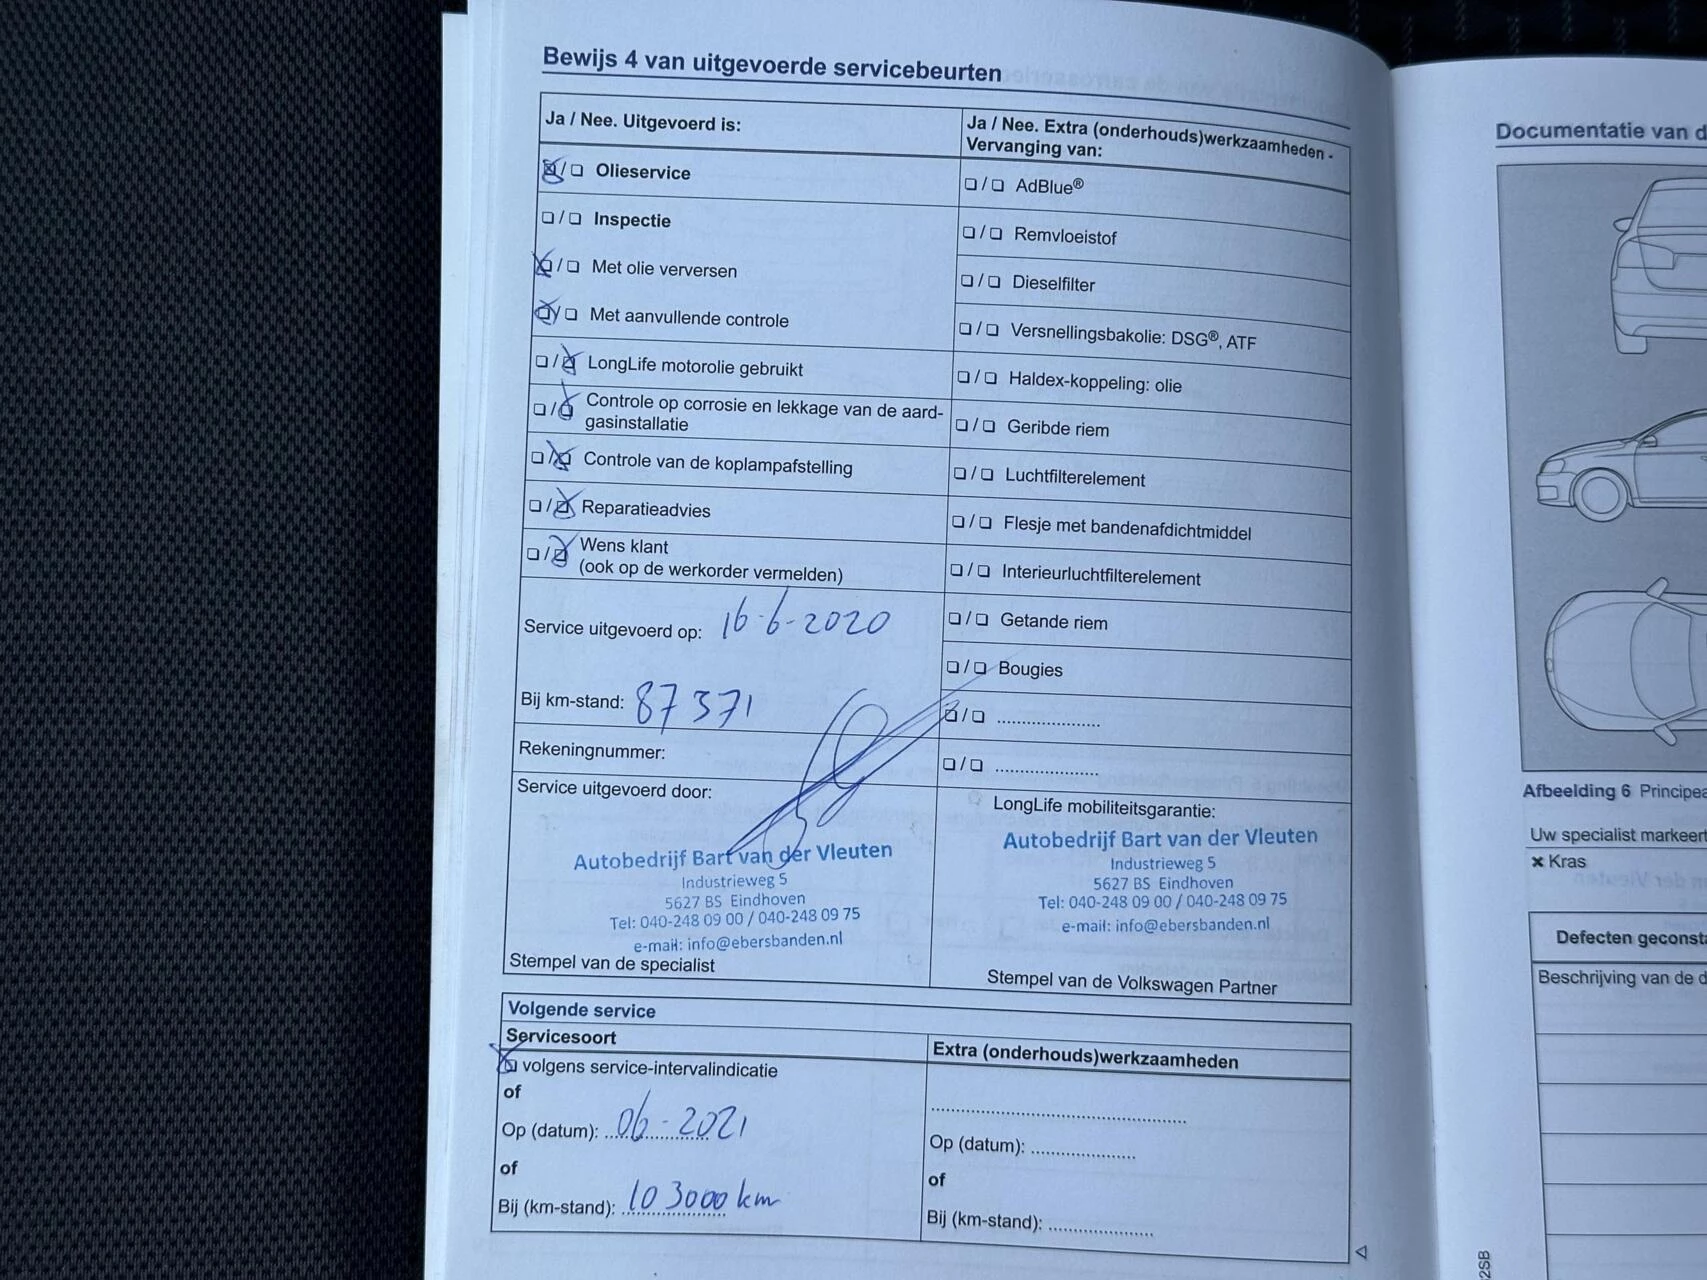 Bewijs 4 van uitgevoerde servicebeurten
Ja / Nee. Uitgevoerd is:
Olieservice
Inspectie
Met olie verversen
Met aanvullende controle
LongLife motorolie gebruikt
Controle op corrosie en lekkage van de aard-
gasinstallatie
Controle van de koplampafstelling
Reparatieadvies
Wens klant
(ook op de werkorder vermelden)
Service uitgevoerd op: 16-6-2020
Bij km-stand: 87371
Rekeningnummer:
Service uitgevoerd door:
Autobedrijf Bart van der Vleuten
Industrieweg 5
5627 BS Eindhoven
Tel: 040-248 09 00 / 040-248 09 75
e-mail: info@ebersbanden.nl
Stempel van de specialist
Ja / Nee. Extra (onderhouds)werkzaamheden -
Vervanging van:
AdBlue®
Remvloeistof
Dieselfilter
Versnellingsbakolie: DSG®, ATF
Haldex-koppeling: olie
Geribde riem
Luchtfilterelement
Flesje met bandenafdichtmiddel
Interieurluchtfilterelement
Getande riem
Bougies
LongLife mobiliteitsgarantie:
Autobedrijf Bart van der Vleuten
Industrieweg 5
5627 BS Eindhoven
Tel: 040-248 09 00 / 040-248 09 75
e-mail: info@ebersbanden.nl
Stempel van de Volkswagen Partner
Volgende service
Servicesoort
volgens service-intervalindicatie
of
Op (datum): 06-2021
of
Bij (km-stand): 103000 km
Extra (onderhouds)werkzaamheden
Op (datum):
of
Bij (km-stand):
Documentatie van d
Afbeelding 6 Principea
Uw specialist markeert
× Kras
Defecten geconsta
Beschrijving van de d
2SB